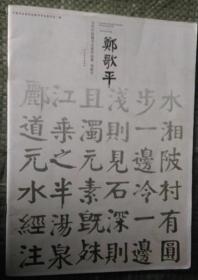 鄭歌平
水湘陂村有圓
步一邊冷一邊
淺則見石深則
且濁玄素既殊
江乘之半湯泉
酈道元水經注